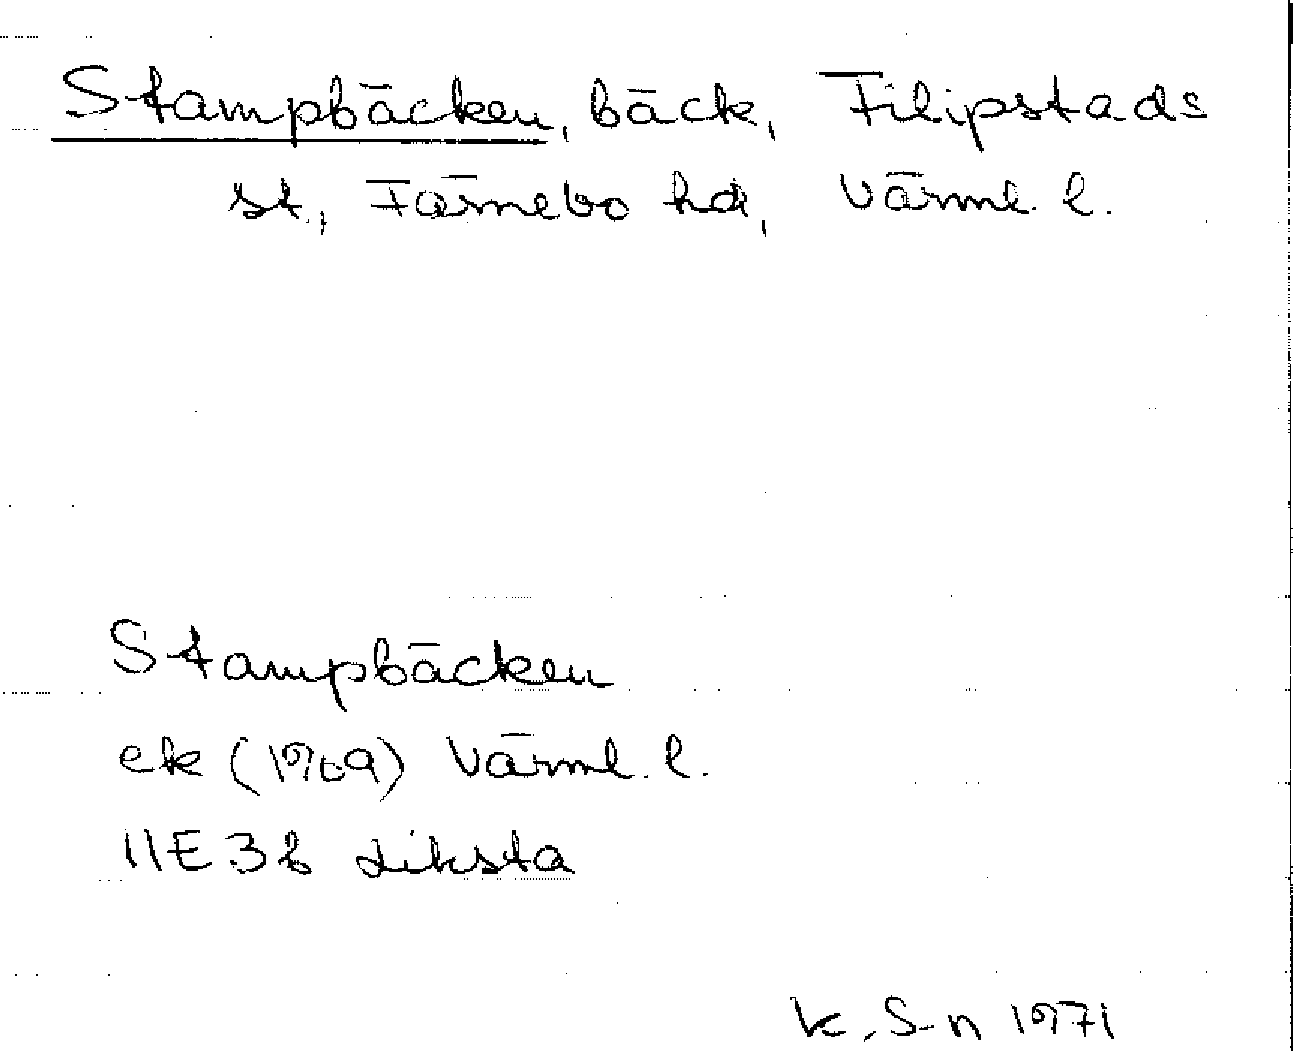 Stampbäcken, bäck, Filipstads
st, Färnebo hd, Värml. l.
Stampbäcken
ek (1969) Värml. l.
11E3b Liksta
K. S-n 1971